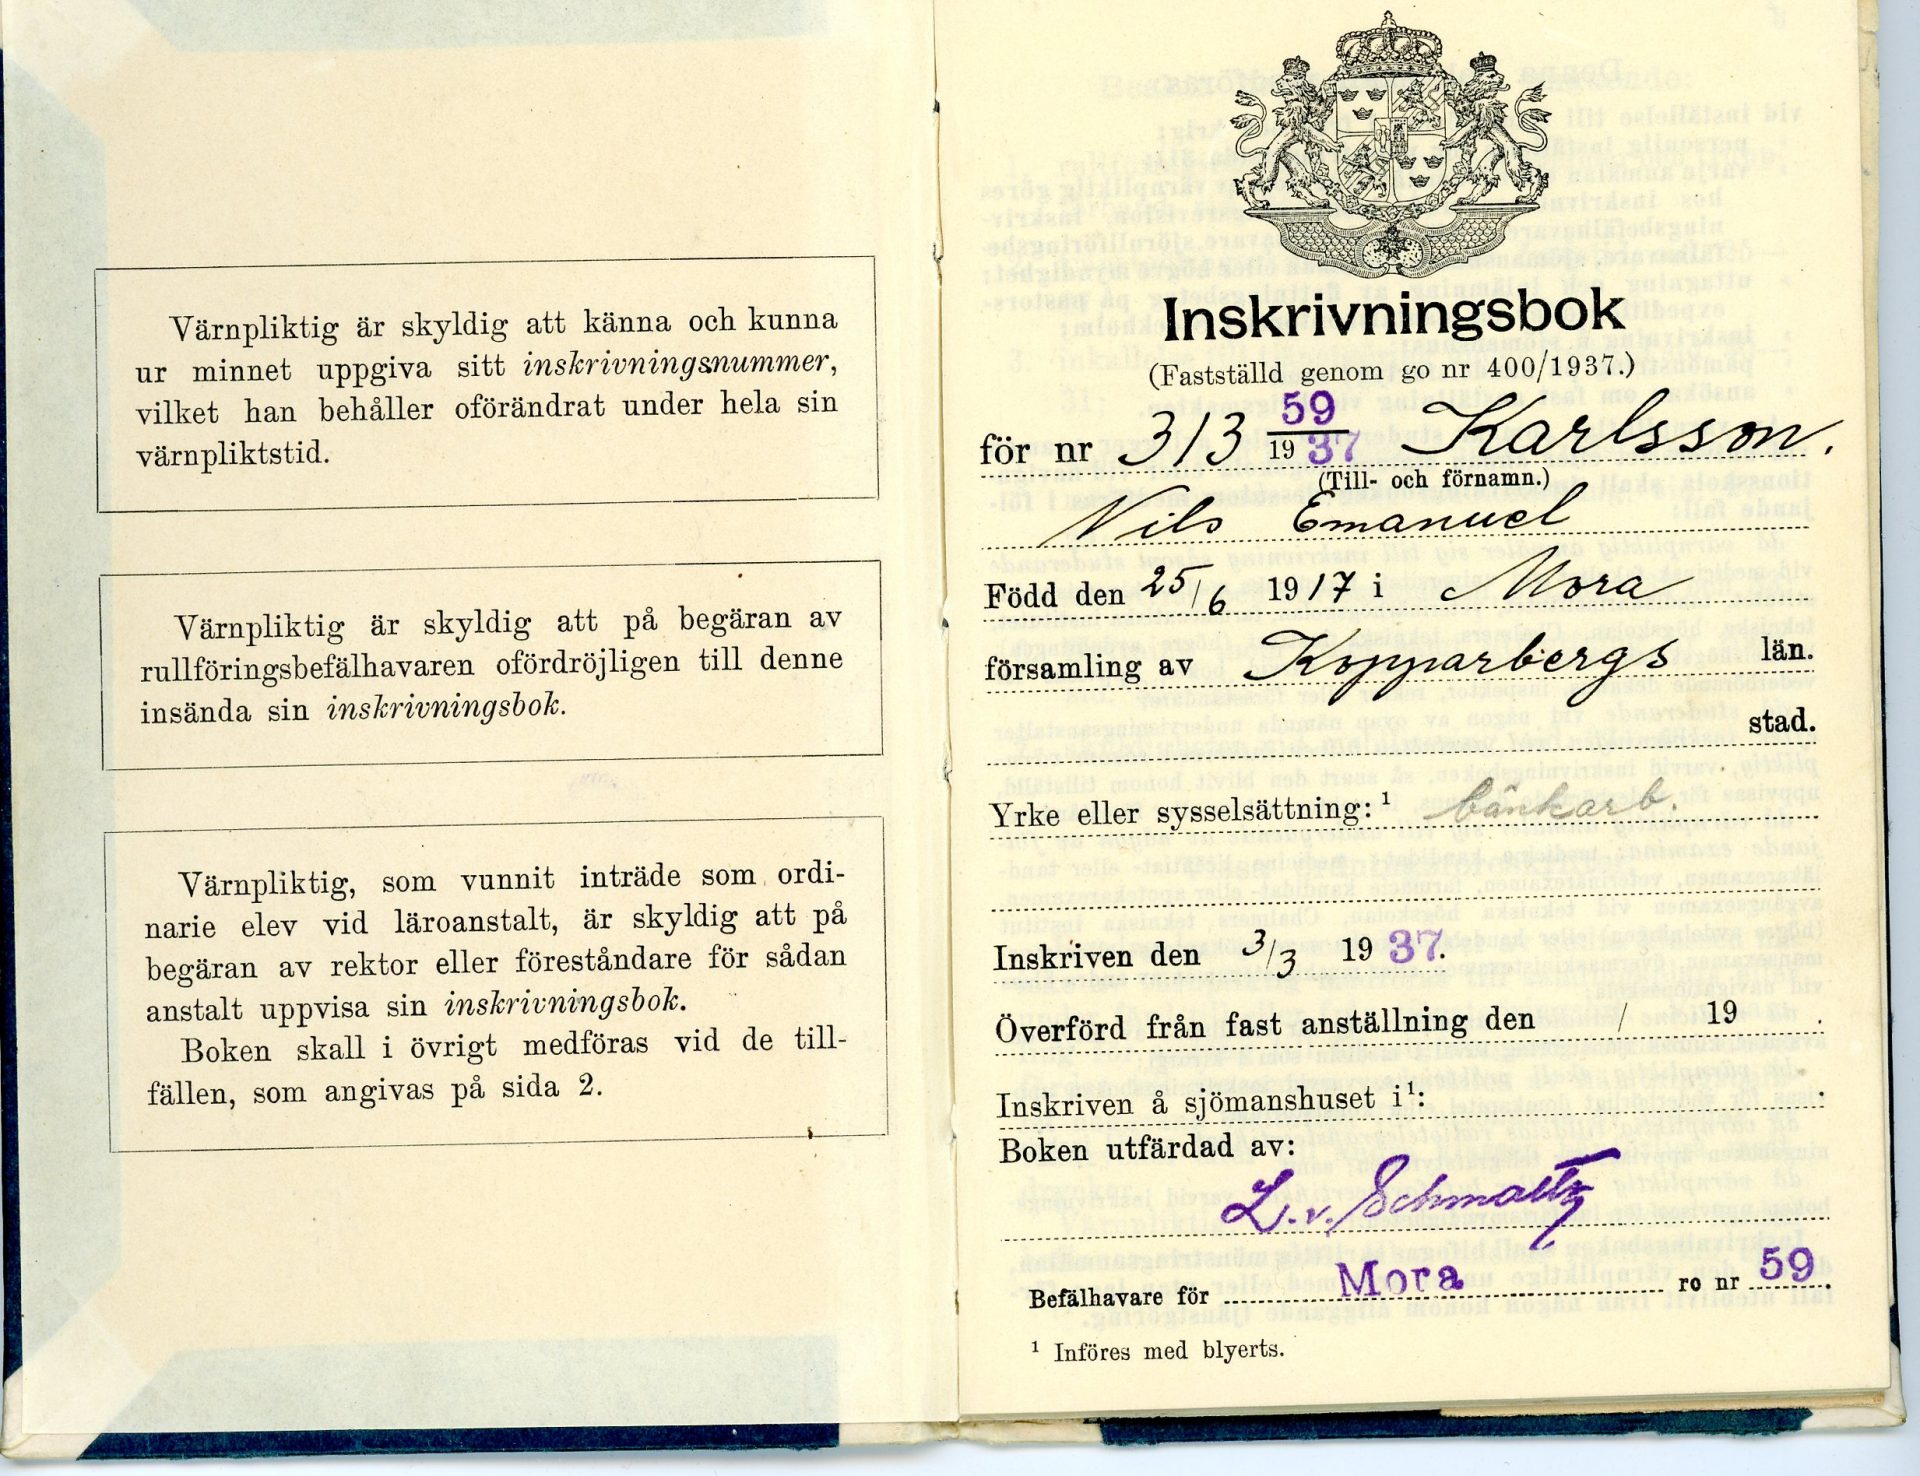 Värnpliktig är skyldig att känna och kunna
ur minnet uppgiva sitt inskrivningsnummer,
vilket han behåller oförändrat under hela sin
värnpliktstid.
Värnpliktig är skyldig att på begäran av
rullföringsbefälhavaren ofördröjligen till denne
insända sin inskrivningsbok.
Värnpliktig, som vunnit inträde som ordi-
narie elev vid läroanstalt, är skyldig att på
begäran av rektor eller föreståndare för sådan
anstalt uppvisa sin inskrivningsbok.
Boken skall i övrigt medföras vid de till-
fällen, som angivas på sida 2.
Inskrivningsbok
(Fastställd genom go nr 400/1937.)
för nr 313 59/1937 Karlsson.
(Till- och förnamn.)
Nils Emanuel
Född den 25/6 1917 i Mora
församling av Kopparbergs län.
stad.
Yrke eller sysselsättning:¹ bänkarb.
Inskriven den 3/3 1937.
Överförd från fast anställning den / 19 .
Inskriven å sjömanshuset i¹: .
Boken utfärdad av:
L. v. Schmaltz
Befälhavare för Mora ro nr 59.
¹ Införes med blyerts.